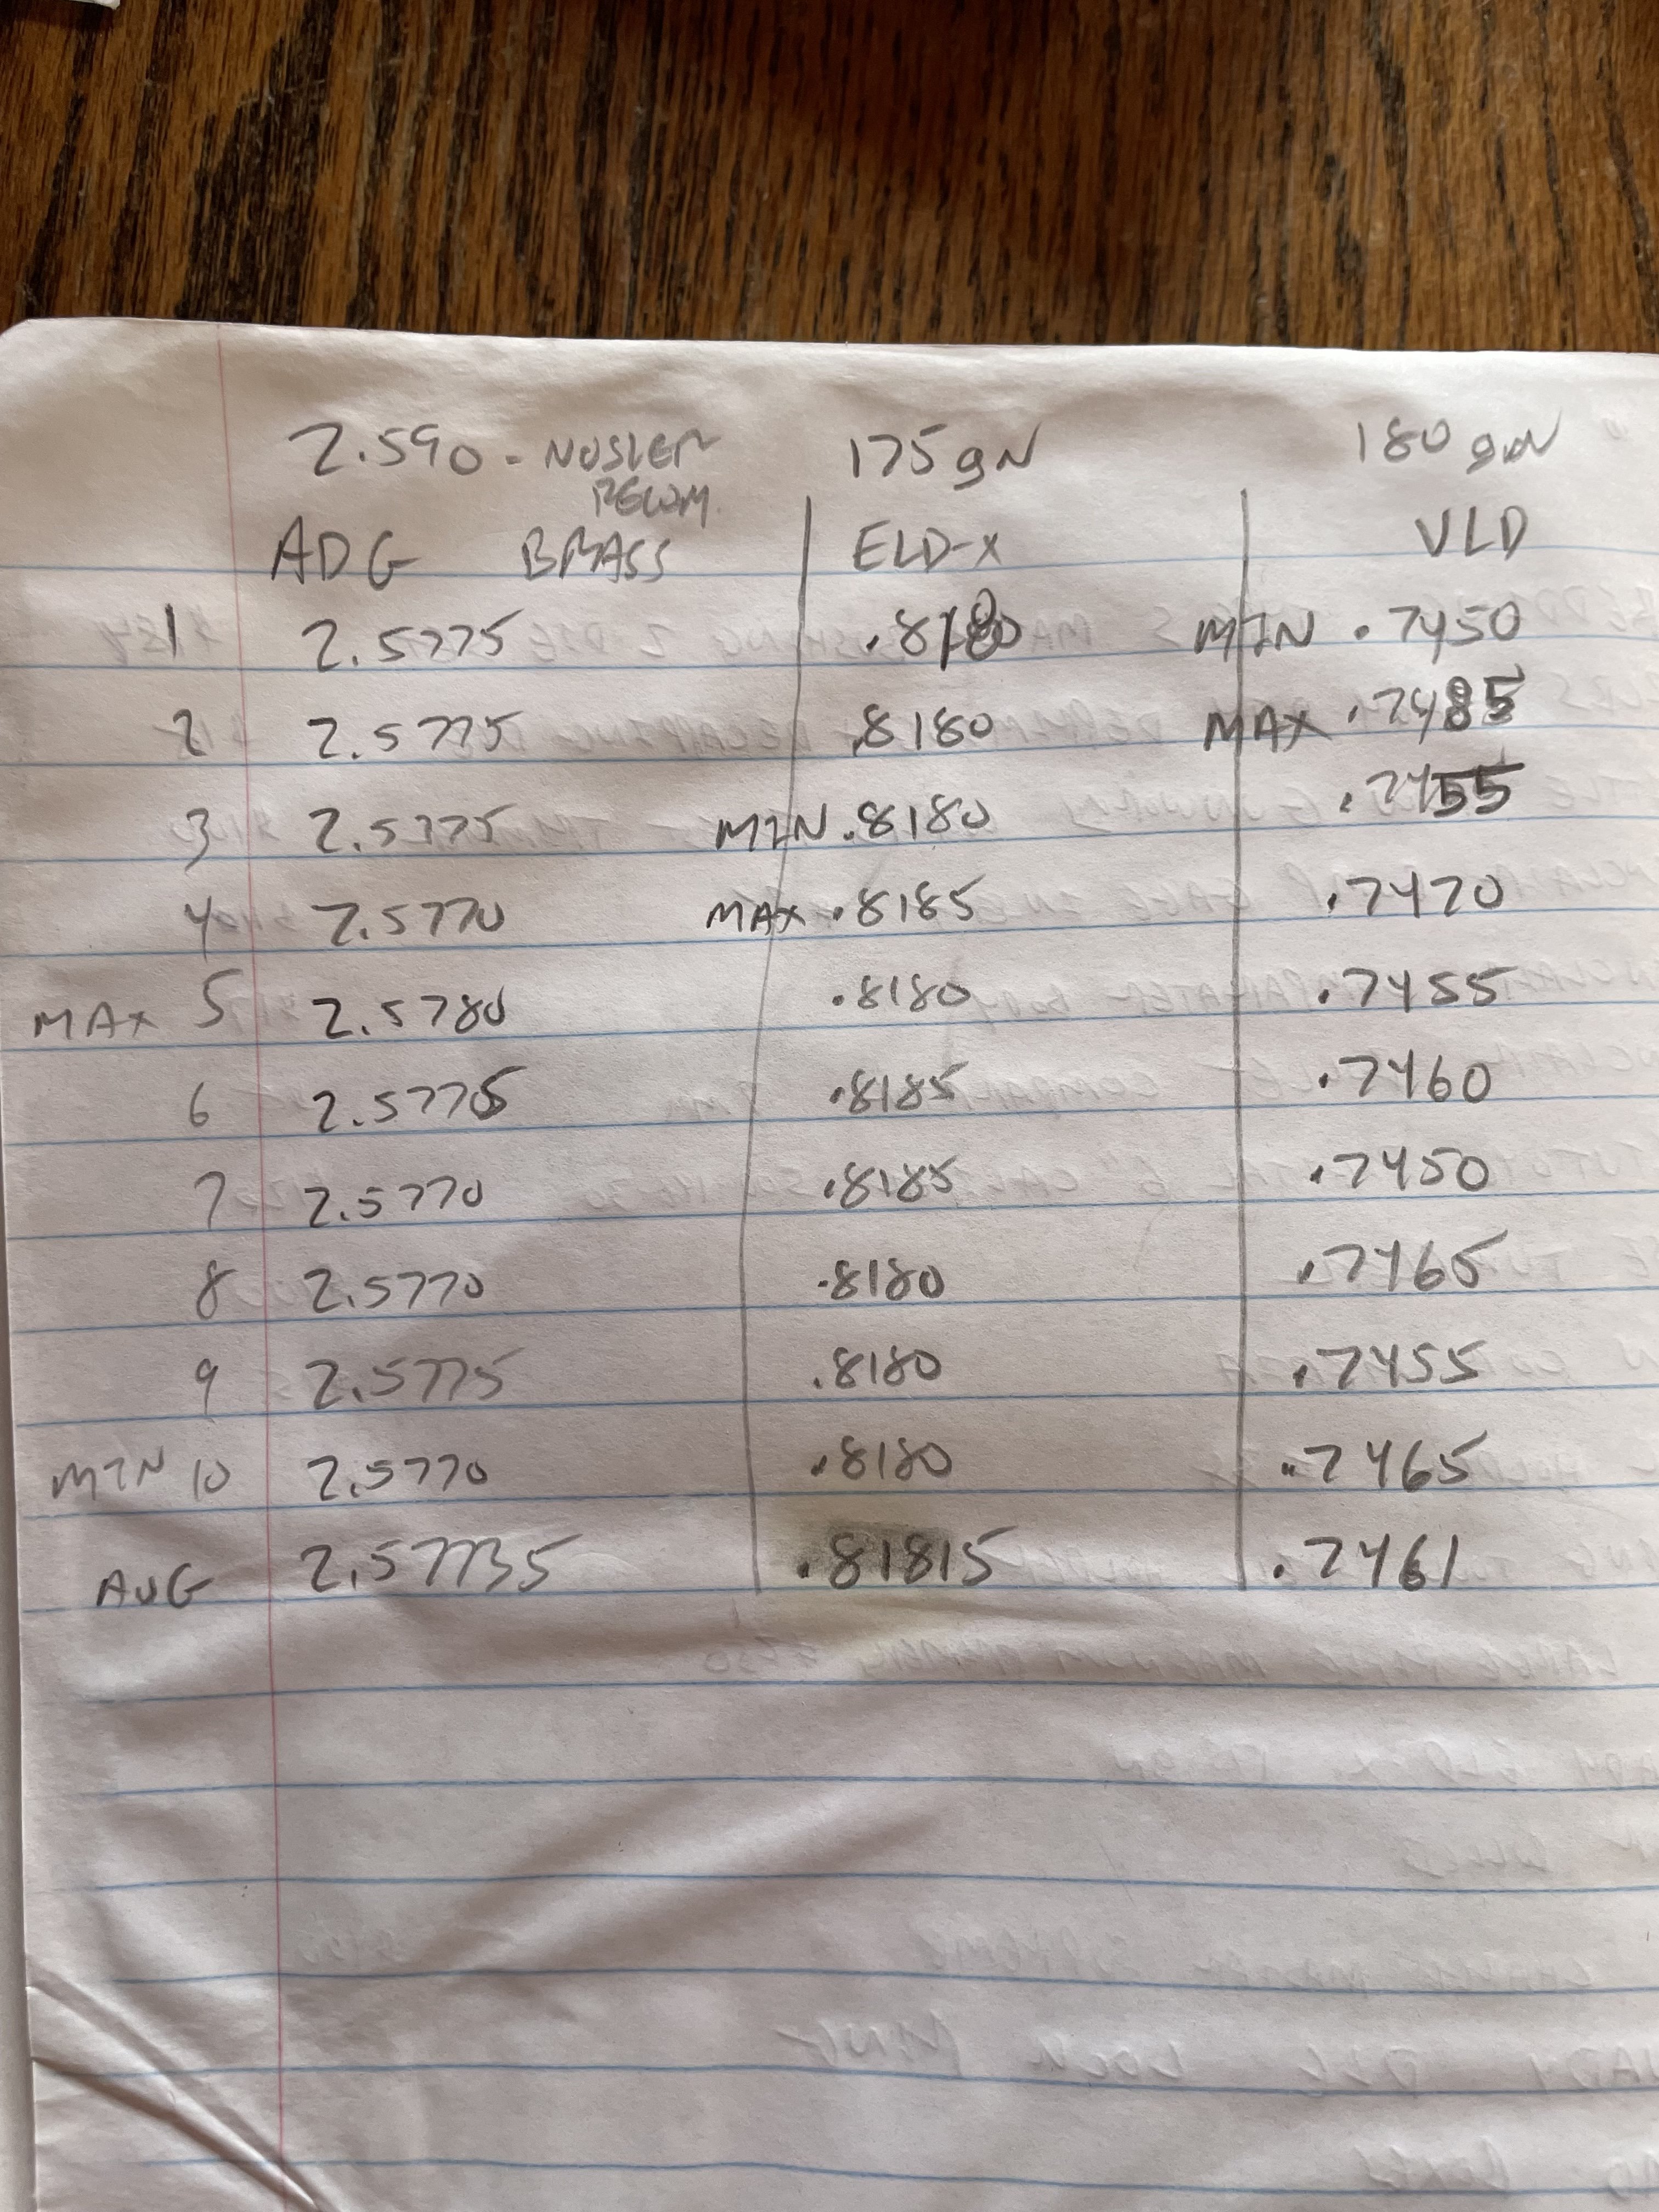 2.590 - NOSLER 175 gN 180 gN
RECOM.
ADG BRASS ELD-X VLD
1 2.5775 .8180 MIN .7450
2 2.5775 .8180 MAX .7485
3 2.5775 MIN .8180 .7455
4 2.5770 MAX .8185 .7470
MAX 5 2.5780 .8180 .7455
6 2.5775 .8185 .7460
7 2.5770 .8185 .7450
8 2.5770 .8180 .7465
9 2.5775 .8180 .7455
MIN 10 2.5770 .8180 .7465
AVG 2.57735 .81815 .7461